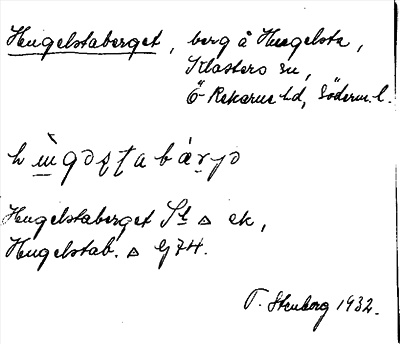 Hugelstaberget, berg å Hugelsta,
Klosters sn,
Ö-Rekarne hd, Söderm. l.
Hugelstaberget St △ ek,
Hugelstab. △ G74.
T. Stenborg 1932.